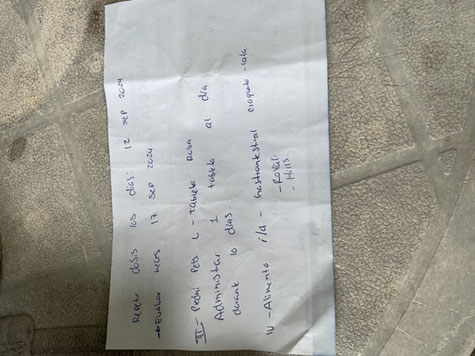 Repetir dosis los días: 12 sep 2024
→ Evaluar heces 17 sep 2024
III - Pedni Pets L - tableta rosa
Administrar 1 tableta al día
durante 10 días.
IV - Alimento i/d - Gastrointestinal croqueta - lata.
- Royal
- Hills